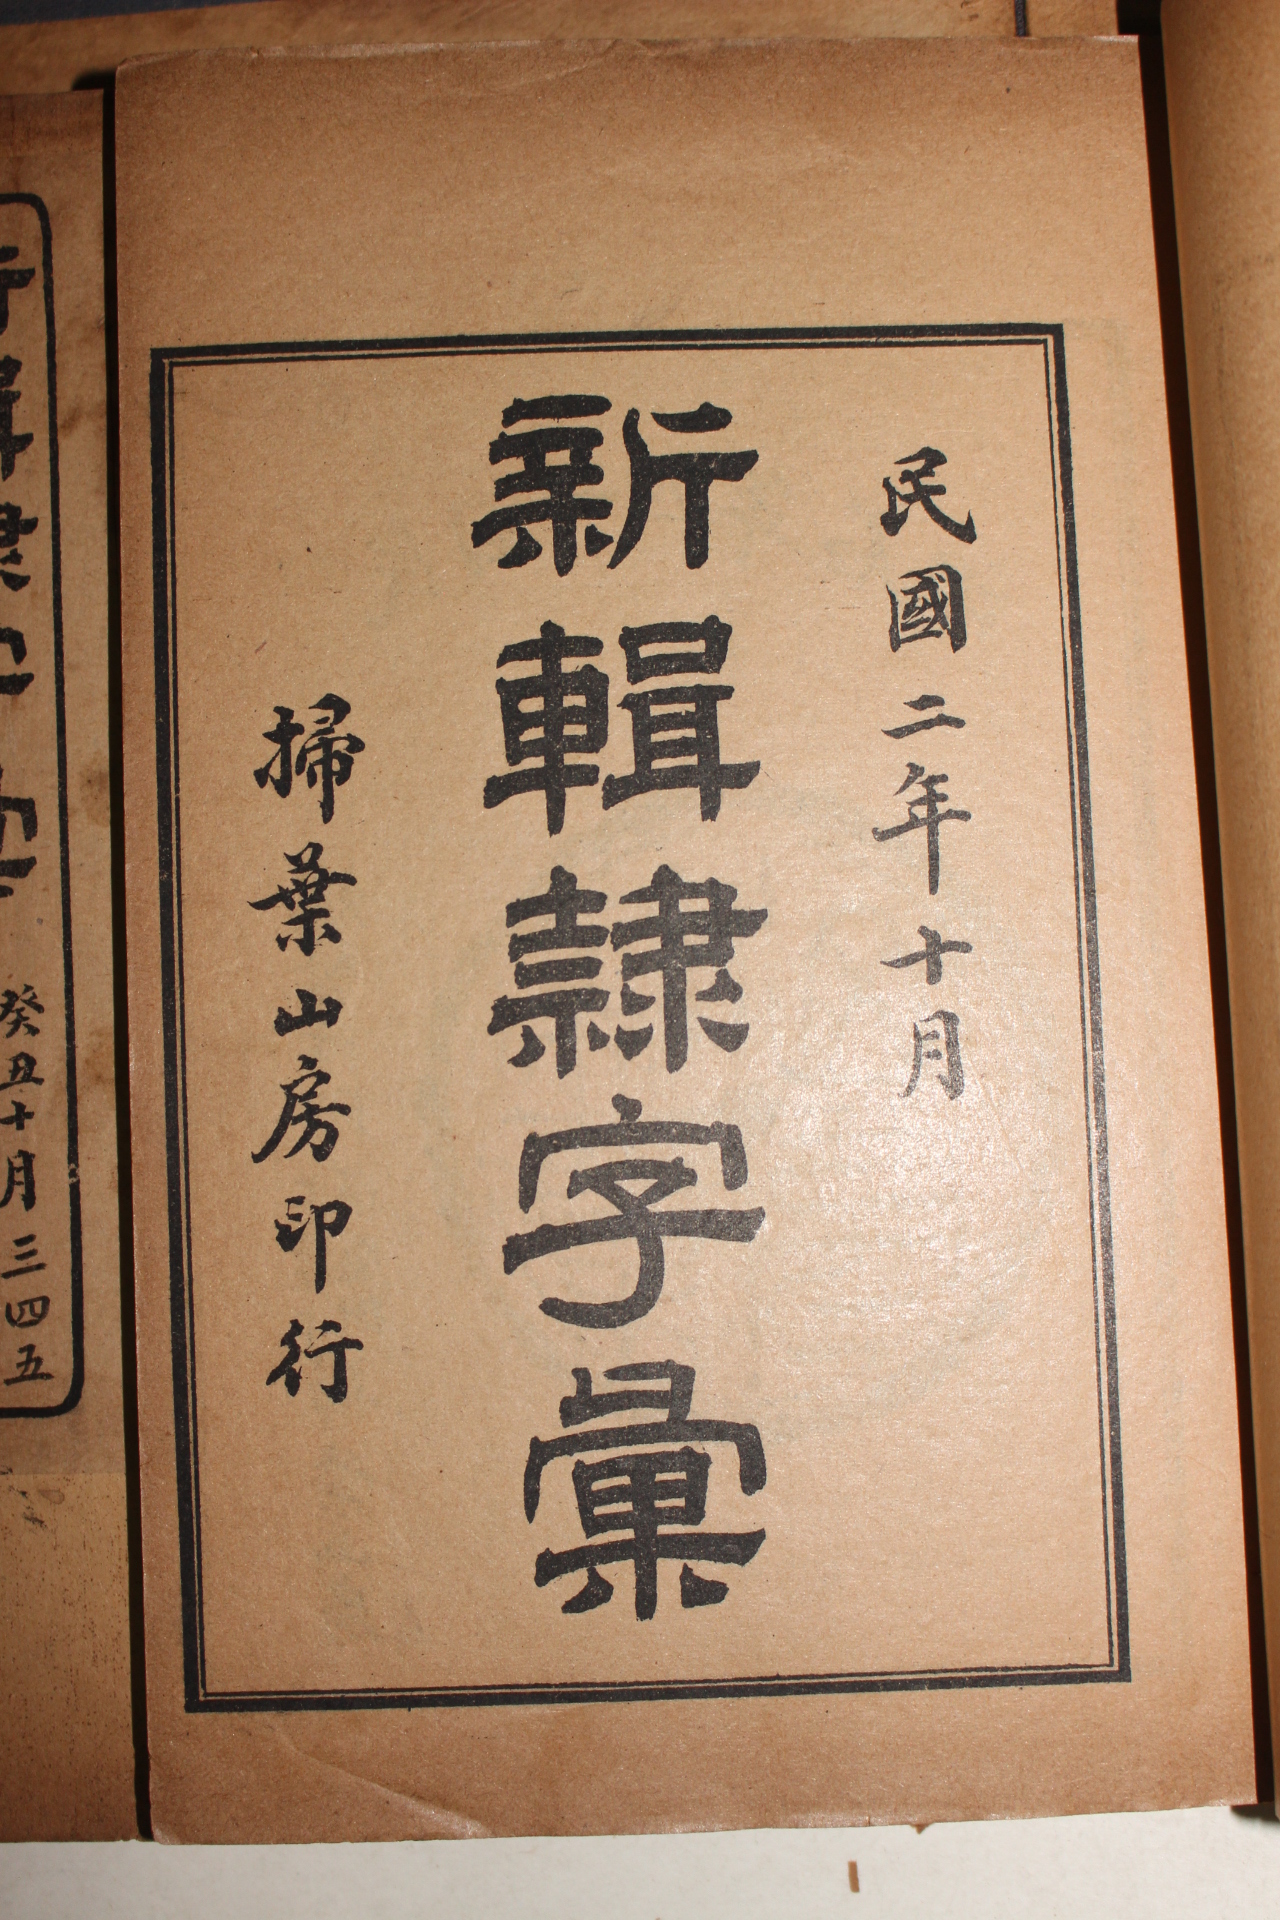 民國二年十月
新輯隸字彙
掃葉山房印行
癸丑十月三四五